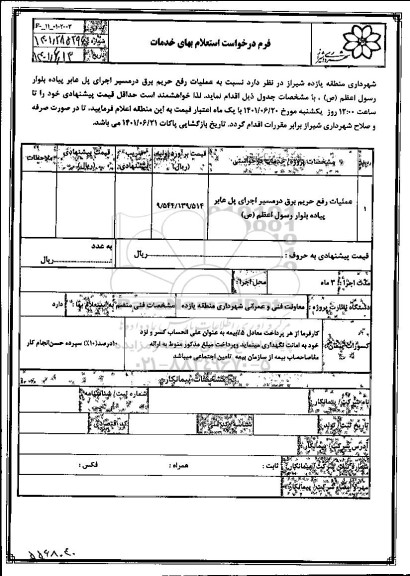 فرم درخواست استعلام بهای خدمات
شهرداری منطقه یازده شیراز در نظر دارد نسبت به عملیات رفع حریم برق درمسیر اجرای پل عابر پیاده بلوار
رسول اعظم (ص) ، با مشخصات جدول ذیل اقدام نماید. لذا خواهشمند است حداقل قیمت پیشنهادی خود را تا
ساعت ۱۲:۰۰ روز یکشنبه مورخ ۱۴۰۱/۰۶/۲۰ با یک ماه اعتبار قیمت به این منطقه اعلام فرمایید. تا در صورت صرفه
و صلاح شهرداری شیراز برابر مقررات اقدام گردد. تاریخ بازگشایی پاکات ۱۴۰۱/۰۶/۲۱ می باشد.
قیمت برآورد اولیه (ریال) قیمت پیشنهادی (ریال) ملاحظات
۱ عملیات رفع حریم برق درمسیر اجرای پل عابر ۹/۵۴۲/۱۳۹/۵۱۴
پیاده بلوار رسول اعظم (ص)
قیمت پیشنهادی به حروف : ریال به عدد ریال
مدت اجرا : ۳ ماه محل اجرا:
دستگاه نظارت پروژه : معاونت فنی و عمرانی شهرداری منطقه یازده مشخصات فنی منضم به استعلام بها : دارد
کارفرما از هر پرداخت معادل ۵٪ بیمه به عنوان علی الحساب کسر و نزد
خود به امانت نگهداری مینماید وپرداخت مبلغ مذکور منوط به ارائه
مفاصاحساب بیمه از سازمان بیمه تامین اجتماعی میباشد
۱۰درصد(۱۰٪) سپرده حسن انجام کار
مشخصات پیمانکار
نام شرکت/ پیمانکار:
شماره ثبت/ شناسنامه
تاریخ ثبت/ تولد:
کد اقتصادی
آدرس شرکت/ پیمانکار:
شماره تماس شرکت/پیمانکار: ثابت : همراه : فکس :
مهر و امضای شرکت/ پیمانکار
۵۵۶۸۰۴۰